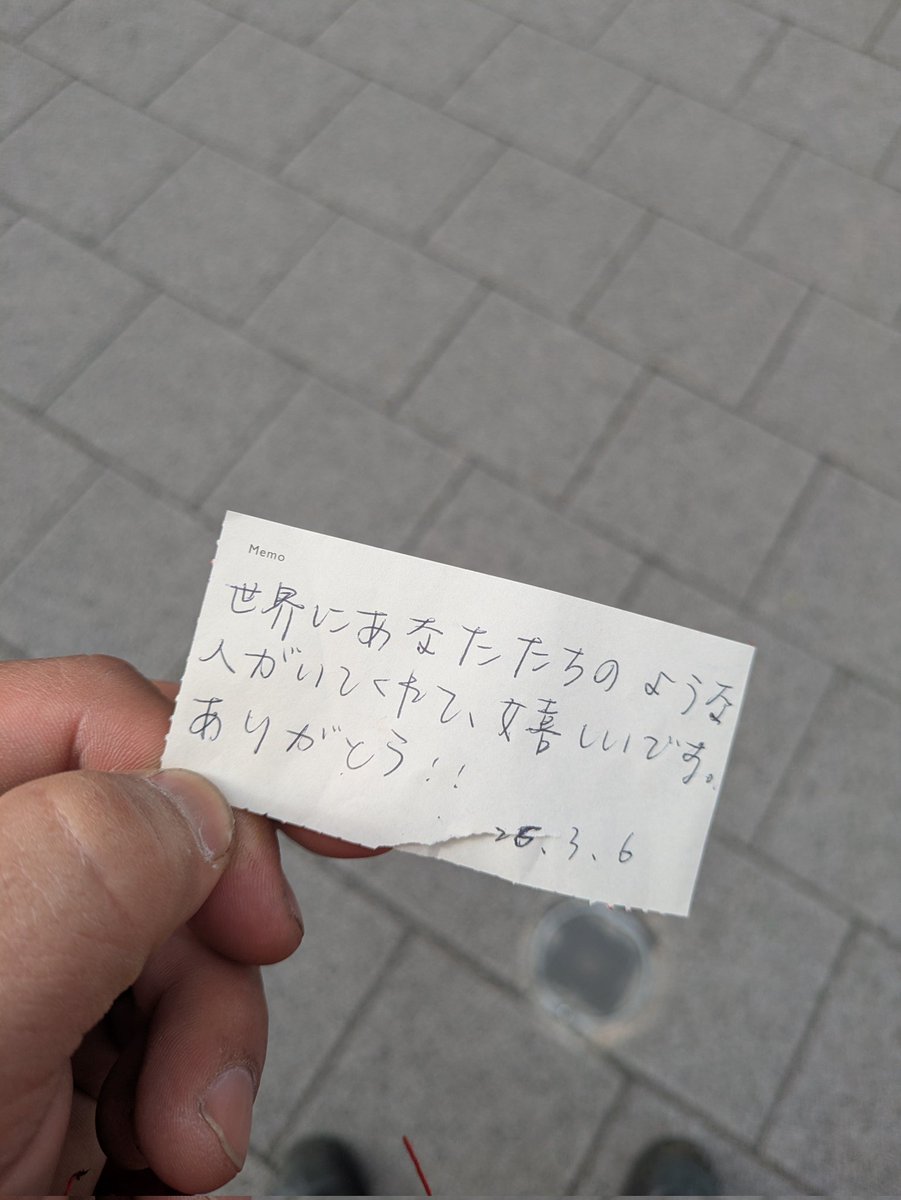 Memo
世界にあなたたちのような
人がいてくれて、嬉しいです。
ありがとう!!
26.3.6